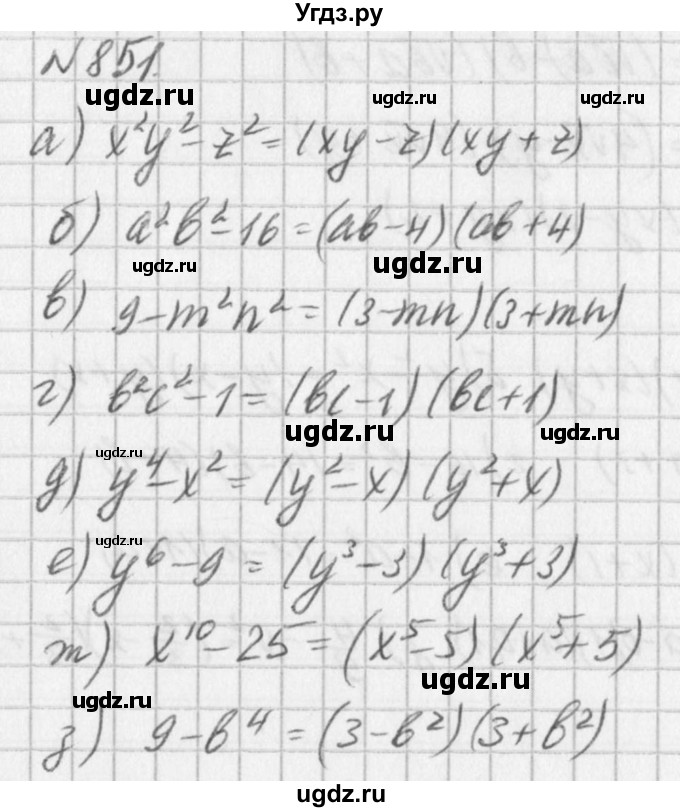 Угдз.ру
№851.
ugdz.ru
ugdz.ru
ugdz.ru
а) x²y²-z²=(xy-z)(xy+z)
б) a²b²-16=(ab-4)(ab+4)
ugdz.ru
ugdz.ru
в) 9-m²n²=(3-mn)(3+mn)
г) b²c²-1=(bc-1)(bc+1)
ugdz.ru
ugdz.ru
ugdz.ru
д) y⁴-x²=(y²-x)(y²+x)
ugdz.ru
е) y⁶-9=(y³-3)(y³+3)
ж) x¹⁰-25=(x⁵-5)(x⁵+5)
ugdz.ru
ugdz.ru
з) 9-b⁴=(3-b²)(3+b²)
ugdz.ru